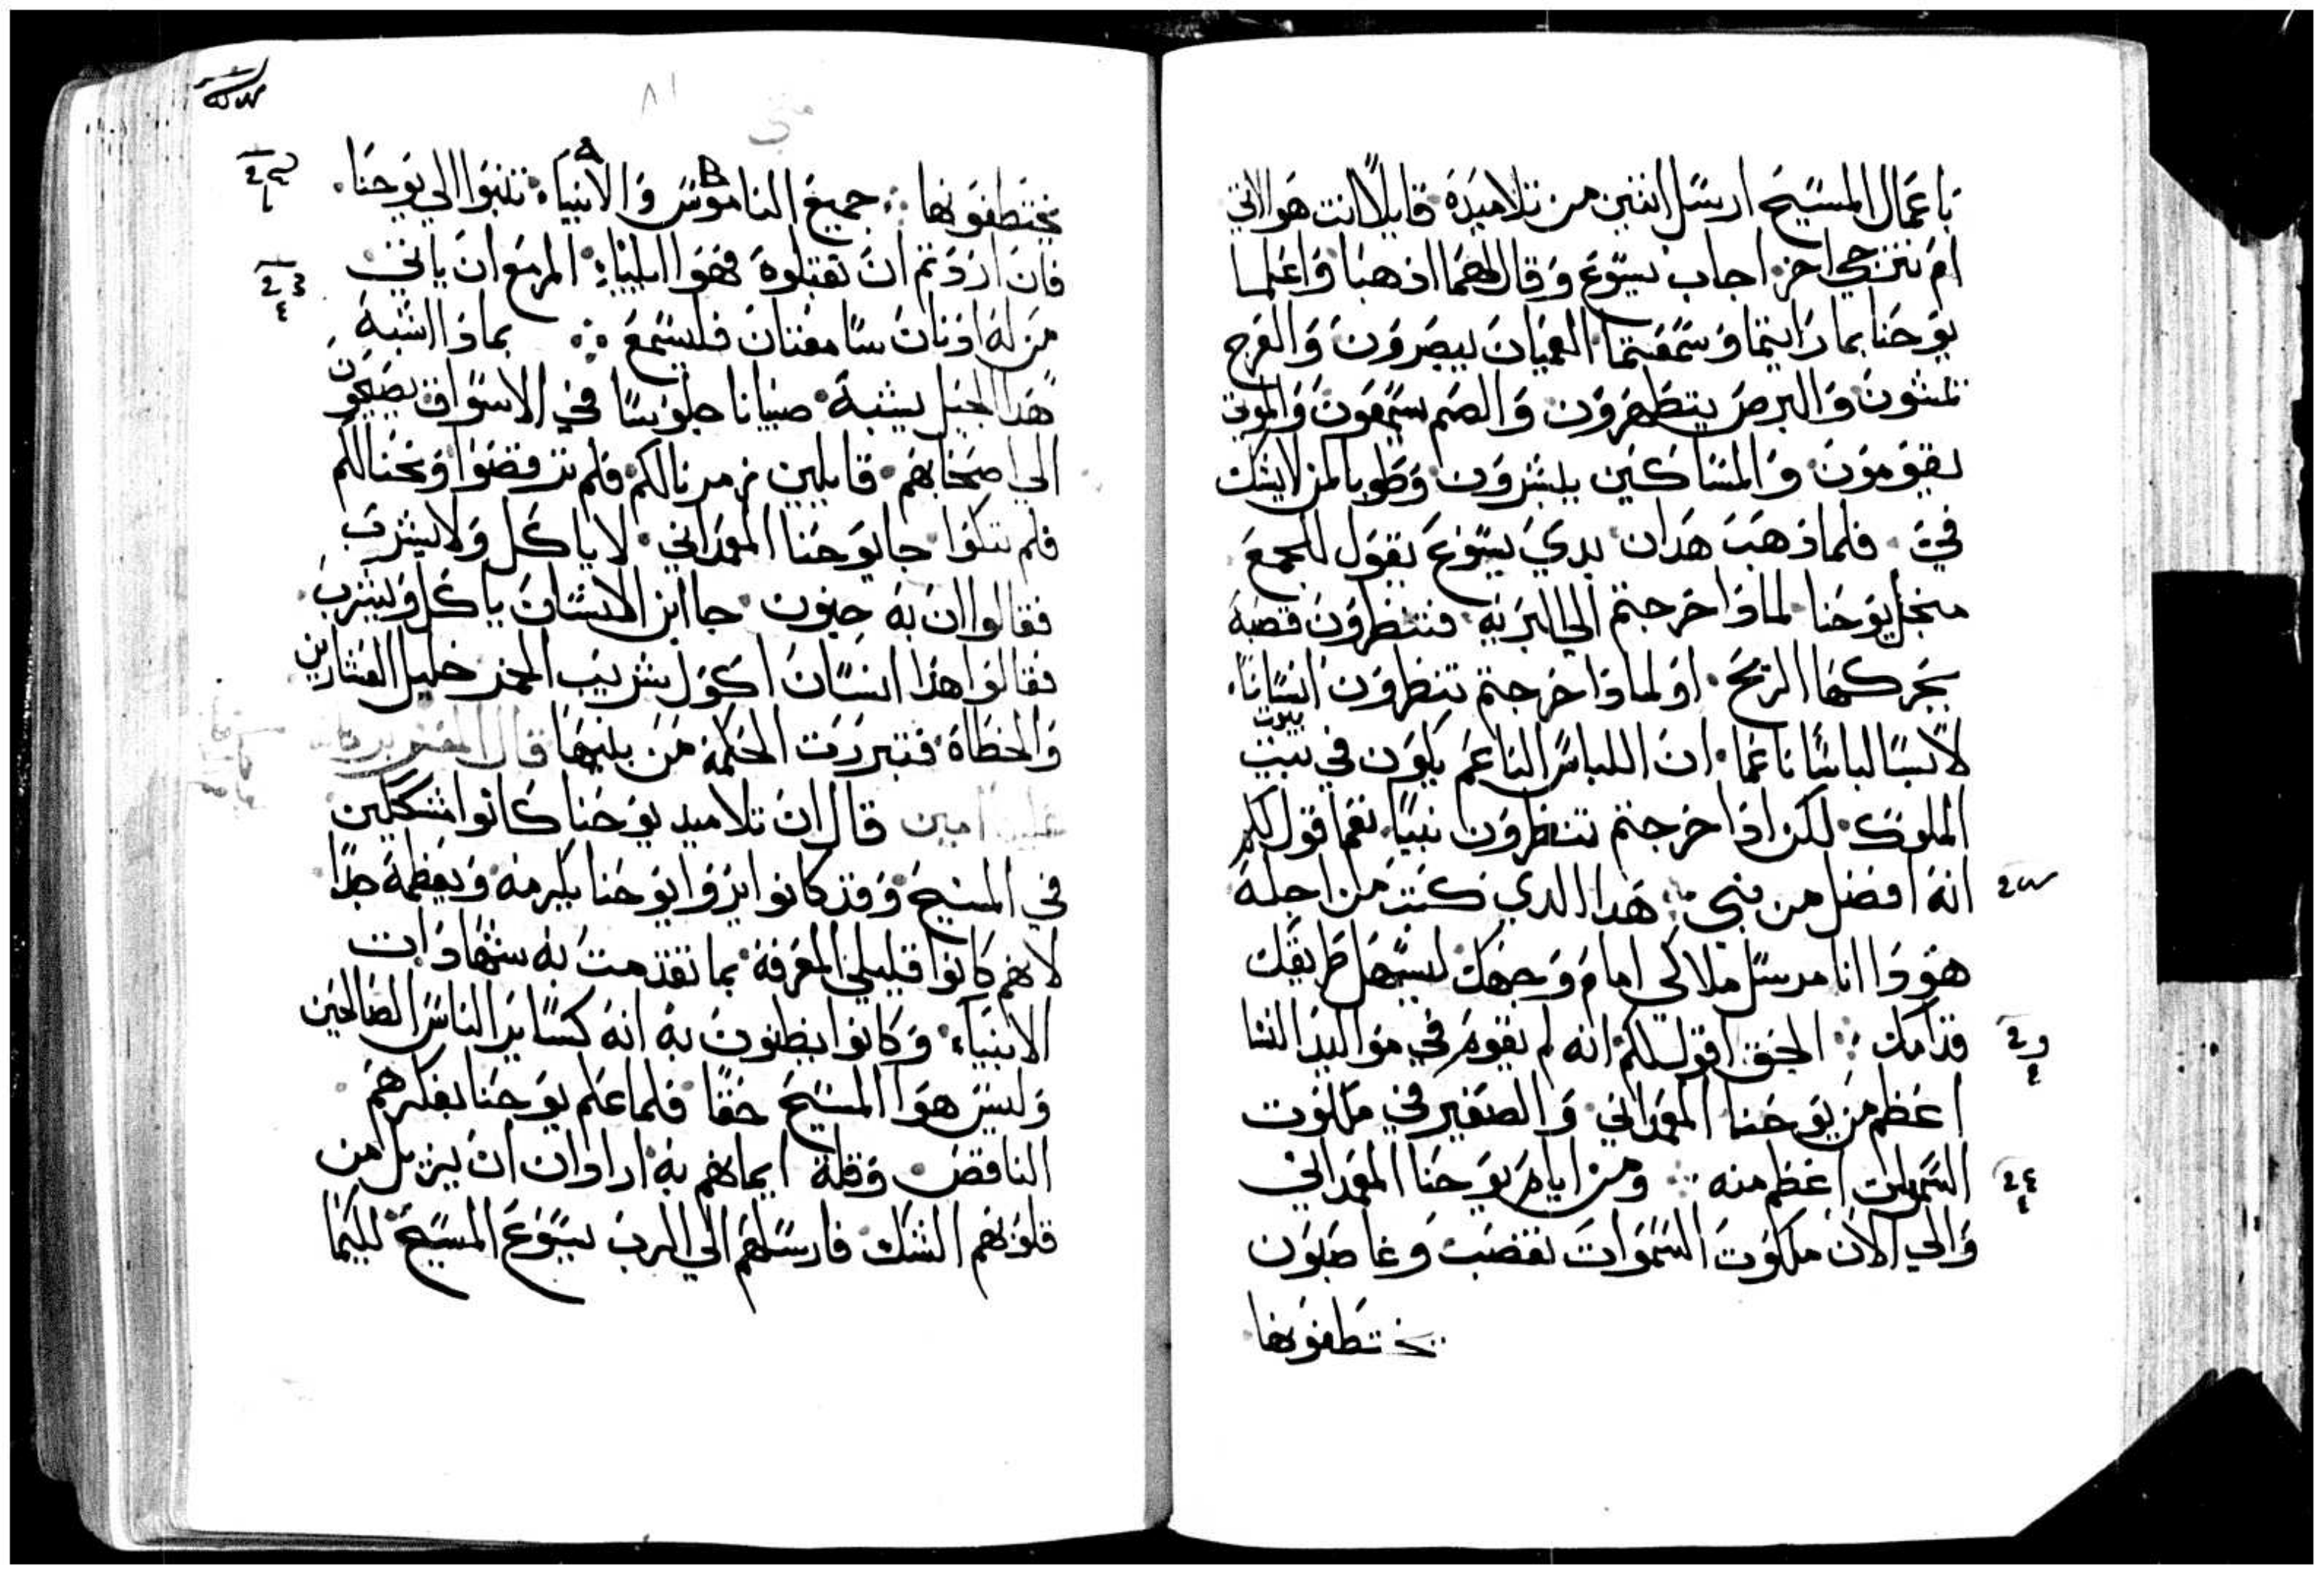 باعمال المسيح ارسل اثنين من تلاميده قايلا انت هوالاتي
ام نترجي اخر اجاب يسوع وقال لهما ادهبا واعلما
يوحنا بما رايتما وسمعتما العميان يبصرون والعرج
يمشون والبرص يتطهرون والصم يسمعون والموتي
يقومون والمساكين يبشرون وطوبا لمن لا يشك
في فلما دهب هدان بدي يسوع يقول للجمع
من اجل يوحنا لمادا خرجتم الي البريه تنتظرون قصبة
يحركها الريح او لمادا خرجتم تنظرون انسانا
لابسا لباسا ناعما ان اللباس الناعم يكون في بيت
بيوت
الملوك لكن ادا خرجتم تنظرون نبيا نعم اقول لكم
انه افضل من نبي هدا الدي كتبت من اجله
هودا انا مرسل ملاكي امام وجهك ليسهل طريقك
قدامك الحق اقول لكم انه لم يقوم في مواليد النسا
اعظم من يوحنا المعمداني والصغير في ملكوت
السموات اعظم منه ومن ايام يوحنا المعمداني
والي الان ملكوت السموات تغصب وغاصبون
يختطفونها
متي
٨١
يختطفونها جميع الناموس والانبياء تنبوا الي يوحنا
فان اردتم ان تقبلوه فهوا ايلياء المزمع ان ياتي
من له ادنان سامعتان فليسمع بمادا اشبه
هدا الجيل يشبه صبيانا جلوسا في الاسواق يصيحون
الي اصحابهم قايلين زمرنا لكم فلم ترقصوا ونحنا لكم
فلم تبكوا جا يوحنا المعمداني لا ياكل ولا يشرب
فقالوا ان به جنون جا ابن الانسان ياكل ويشرب
فقالوا هدا انسان اكول شريب الخمر خليل العشارين
والخطاه فتبررت الحكمة من بنيها قال المفسر
امين قال ان تلاميد يوحنا كانوا متشككين
في المسيح وقد كانوا يروا يوحنا يكرمه ويعظمه جدا
لانهم كانوا قليلي المعرفة بما تقدمت به شهادات
الانبياء وكانوا يظنون به انه كساير الناس الصالحين
وليس هوا المسيح حقا فلما علم يوحنا بفكرهم
الناقص وقلة ايمانهم به ارادان ان يزيل من
قلوبهم الشك فارسلهم الي الرب يسوع المسيح لكيما